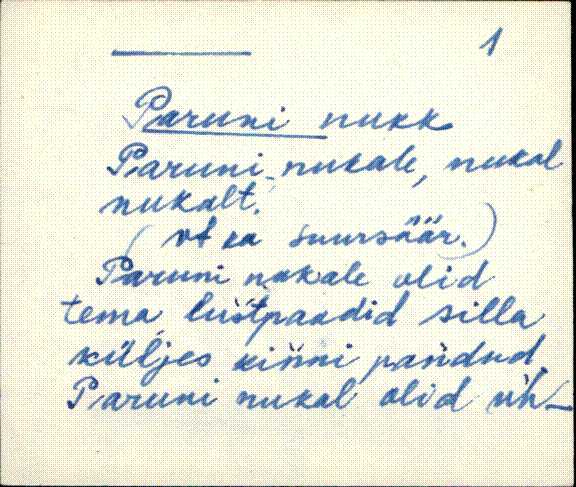 1
Paruni nukk
Paruni-nukale, nukal
nukalt.
(vt ka suursäär.)
Paruni nukale olid
tema lustpaadid silla
küljes kinni pandud.
Paruni nukal olid üh-